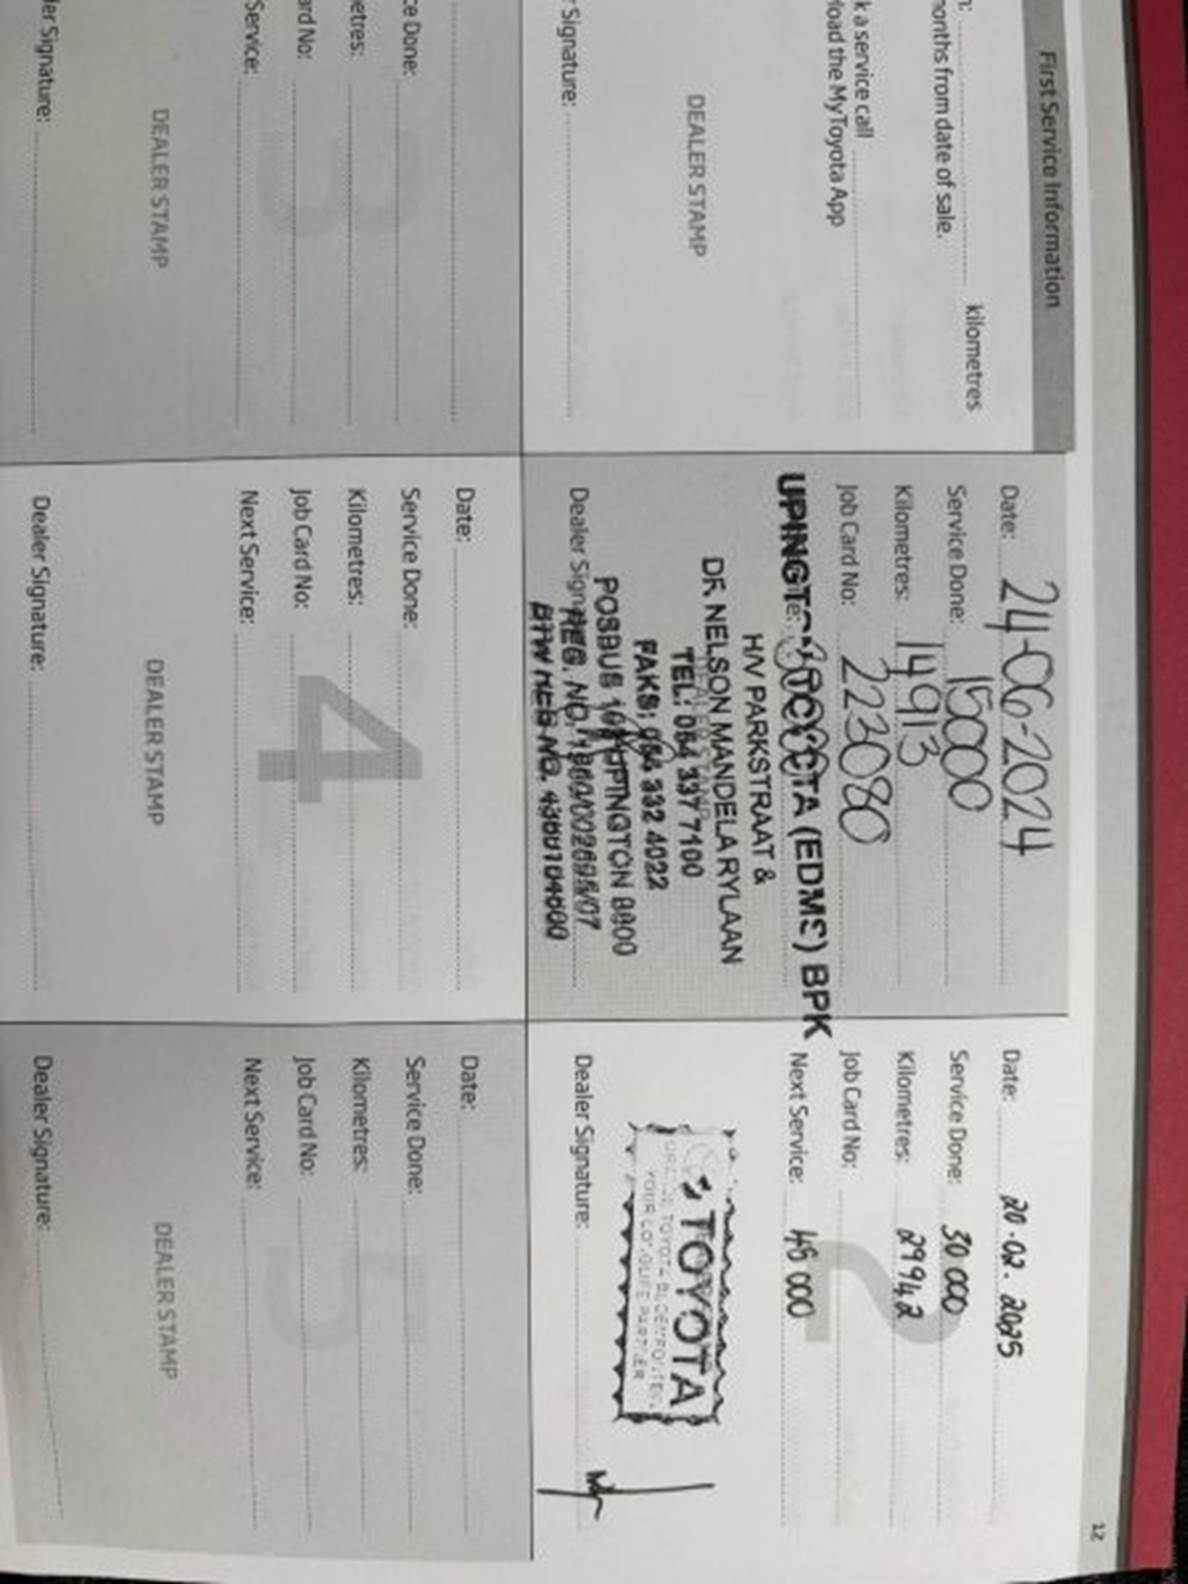 12
First Service Information
kilometres
months from date of sale.
k a service call
load the MyToyota App
DEALER STAMP
Signature:
Date: 24-06-2024
Service Done: 15000
Kilometres: 14913
Job Card No: 223080
UPINGTON TOYOTA (EDMS) BPK
H/V PARKSTRAAT &
DR NELSON MANDELA RYLAAN
TEL: 054 337 7100
FAKS: 054 332 4022
POSBUS UPINGTON 8800
Dealer Signature:
REG. NO.
BTW REG NO.
Date: 20.02.2025
Service Done: 30 000
Kilometres: 29942
Job Card No:
Next Service: 45 000
2
TOYOTA
Dealer Signature:
ce Done:
etres:
ard No:
Service:
3
DEALER STAMP
ler Signature:
Date:
Service Done:
Kilometres:
Job Card No:
Next Service:
4
DEALER STAMP
Dealer Signature:
Date:
Service Done:
Kilometres:
Job Card No:
Next Service:
5
DEALER STAMP
Dealer Signature: